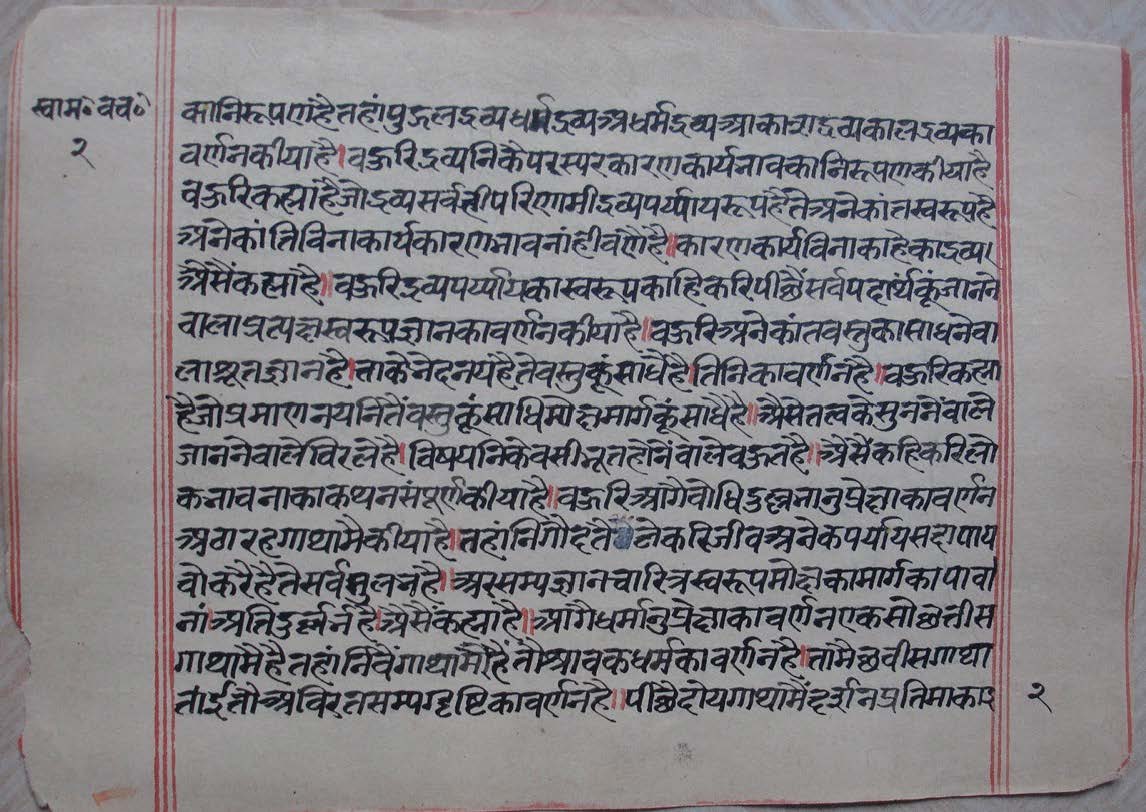 स्वाम॰ वच॰
२
कानिरूपणहैतहांपुद्गलद्रव्यधर्मद्रव्यअधर्मद्रव्यआकाशद्रव्यकालद्रव्यका
वर्णनकीयाहै।वऊरिद्रव्यनिकैपरस्परकारणकार्यभावकानिरूपणकीयाहै
वऊरिकह्याहैजोद्रव्यसर्वहीपरिणामीद्रव्यपर्य्यायरूपहैतेअनेकांतस्वरूपहै
अनेकांतविनाकार्यकारणभावनांहीवणैहै॥कारणकार्यविनाकाहेकाद्रव्य।
अैसैंकह्याहै॥वऊरिद्रव्यपर्य्यायकास्वरूपकाहिकरिपीछैंसर्वपदार्थकूंजानने
वालाप्रत्यक्षस्वरूपज्ञानकावर्णनकीयाहै॥वऊरिअनेकांतवस्तुकासाधनेवा
लाश्रुतज्ञानहै।ताकेभेदनयहैतेवस्तुकूंसाधैंहै।तिनिकावर्णनहै॥वऊरिकह्या
हैजोप्रमाणनयनितैंवस्तुकूंसाधिमोक्षमार्गकूंसाधैहै॥अैसेतत्वकेसुननेंवाले
जाननेवालेविरलेहै।विषयनिकेवसीभूतहोनेंवालेवऊतहै॥अैसैंकहिकरिलो
कभावनाकाकथनसंपूर्णकीयाहै॥वऊरिआगैवोधिदुर्ल्लभानुप्रेक्षाकावर्णन
अठारहगाथामैकीयाहै।तहांनिगोदतै लेकरिजीवअनेकपर्यायसदापाय
वोकरैहैतेसर्वसुलभहै॥अरसम्यज्ञानचारित्रस्वरूपमोक्षकामार्गकापावा
नांअतिदुर्ल्लभहै।अैसैंकह्याहै॥आगैधर्मानुप्रेक्षाकावर्णनएकसौछत्तीस
गाथामैहैतहांनिवैंगाथामैंहैंतौश्रावकधर्मकावर्णनहै।तामैछवीसगाथा
तांईतौअविरतसम्यग्दृष्टिकावर्णनहै॥पीछैदोयगाथामैंदर्शनप्रतिमाकाऽ
२